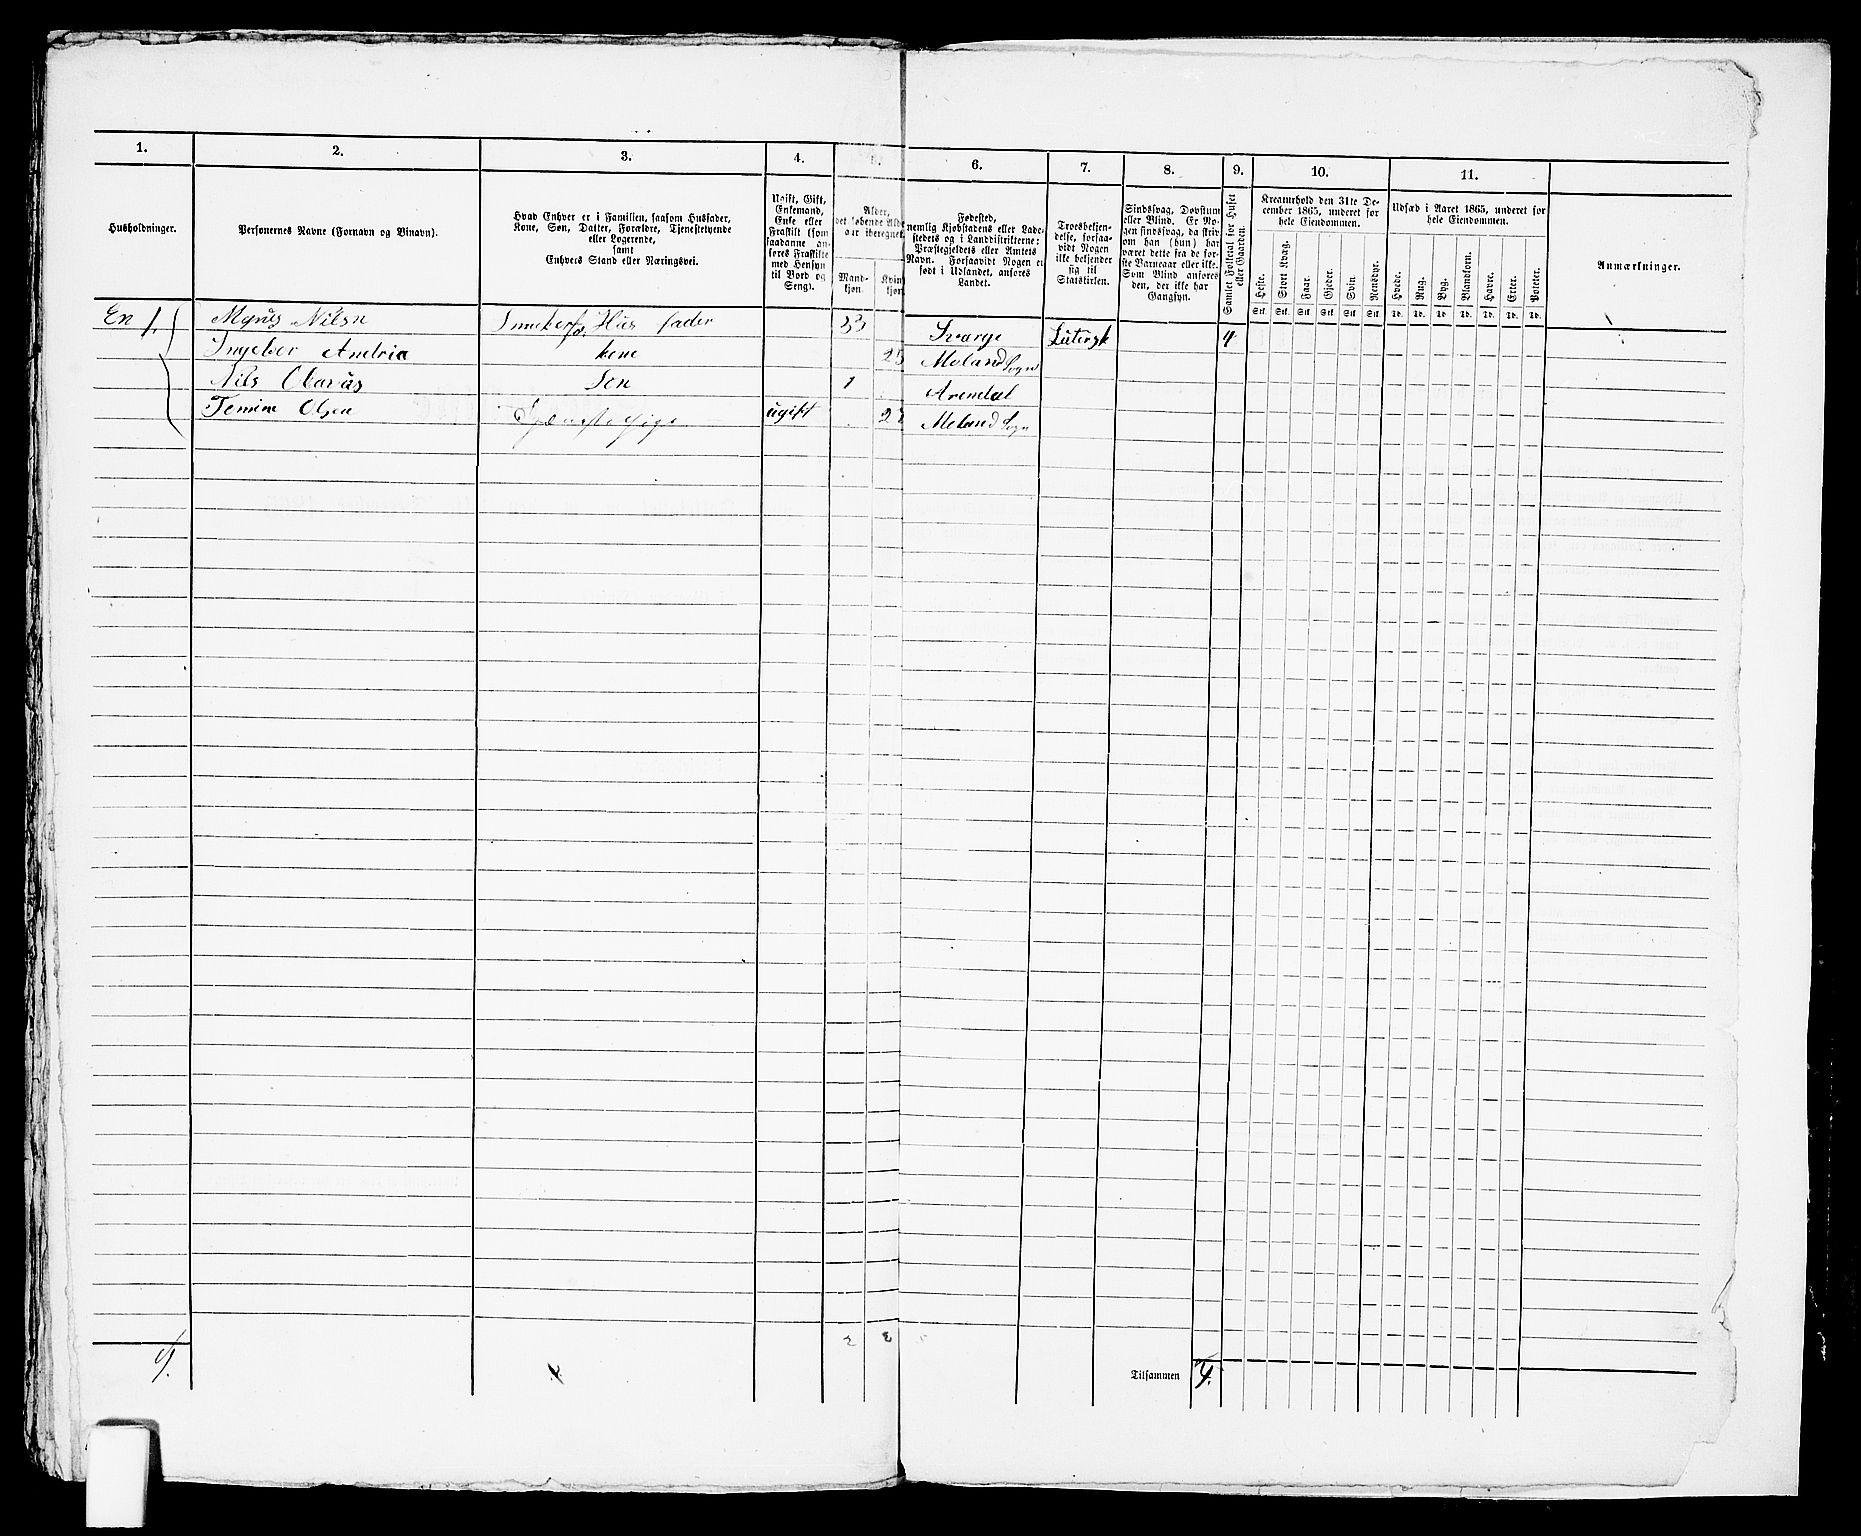 1. 2. 3. 4. 5. 6. 7. 8. 9. 10. 11.
Husholdninger.
Personernes Navne (Fornavn og Binavn).
Hvad Enhver er i Familien, saasom Husfader,
Kone, Søn, Datter, Forældre, Tjenestetyende
eller Logerende,
samt
Enhvers Stand eller Næringsvei.
Ugift, Gift,
Enkemand,
Enke eller
Fraskilt (som
saadanne an-
føres Fraskilte
med Hensyn
til Bord og
Seng).
Alder,
det løbende Alders-
aar iberegnet.
Mand-
kjøn.
Kvin
kjøn
Fødested,
nemlig Kjøbstadens eller Lade-
stedets og i Landdistrikterne:
Præstegjeldets eller Amtets
Navn. Forsaavidt Nogen er
født i Udlandet, anføres
Landet.
Troesbekjen-
delse, forsaa-
vidt Nogen
ikke bekjender
sig til
Statskirken.
Sindssvag, Døvstum
eller Blind. Er No-
gen sindssvag, da skriv
om han (hun) har
været dette fra de før-
ste Barneaar eller ikke.
Som Blind anføres
den, der ikke har
Gangsyn.
Samlet Folketal for Huset
eller Gaarden.
Kreaturhold den 31te De-
cember 1865, underet for
hele Eiendommen.
Heste. Stort Kvæg. Faar. Gjeder. Svin. Rensdyr.
Stk. Stk. Stk. Stk. Stk. Stk.
Udsæd i Aaret 1865, underet for
hele Eiendommen.
Hvede. Rug. Byg. Blandkorn. Havre. Erter. Poteter.
Td. Td. Td. Td. Td. Td. Td.
Anmærkninger.
En 1. Nilsn fader 33 Lutersk 4
Ingebor kone 25 Moland Sogn
Nils Son 1 Arendal
Olsen ugift Moland Sogn
4.
Tilsammen 4.